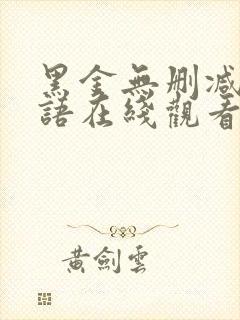 黑金無刪减
語在綫觀看
黄劍雲